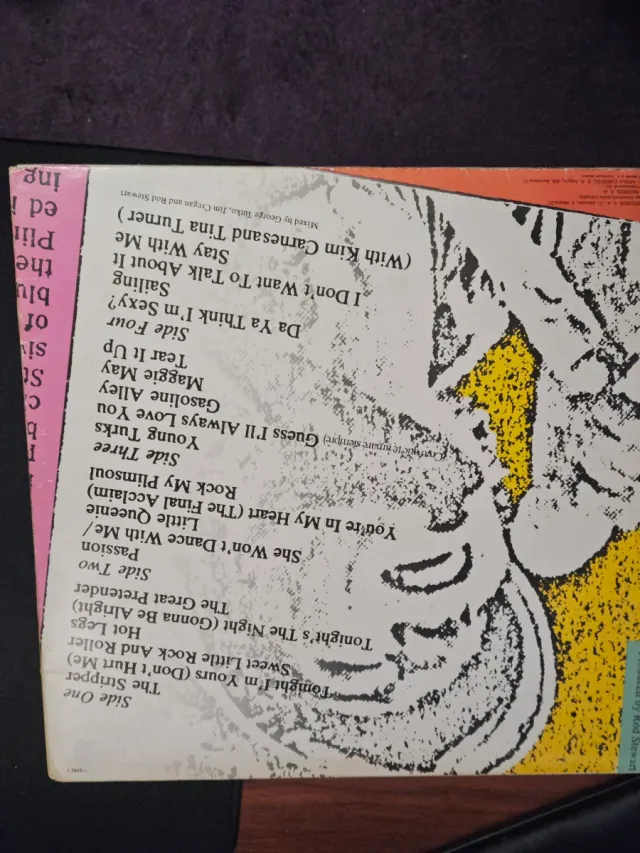 Side One
The Stripper
Tonight I'm Yours (Don't Hurt Me)
Sweet Little Rock And Roller
Hot Legs
Tonight's The Night (Gonna Be Alright)
The Great Pretender
Side Two
Passion
She Won't Dance With Me/
Little Queenie
You're In My Heart (The Final Acclaim)
Rock My Plimsoul
Side Three
Young Turks
Guess I'll Always Love You
Gasoline Alley
Maggie May
Tear It Up
Side Four
Da Ya Think I'm Sexy?
Sailing
I Don't Want To Talk About It
Stay With Me
(With Kim Carnesand Tina Turner)
Mixed by George Tutko, Jim Cregan and Rod Stewart
ing
ed
the
blu
of